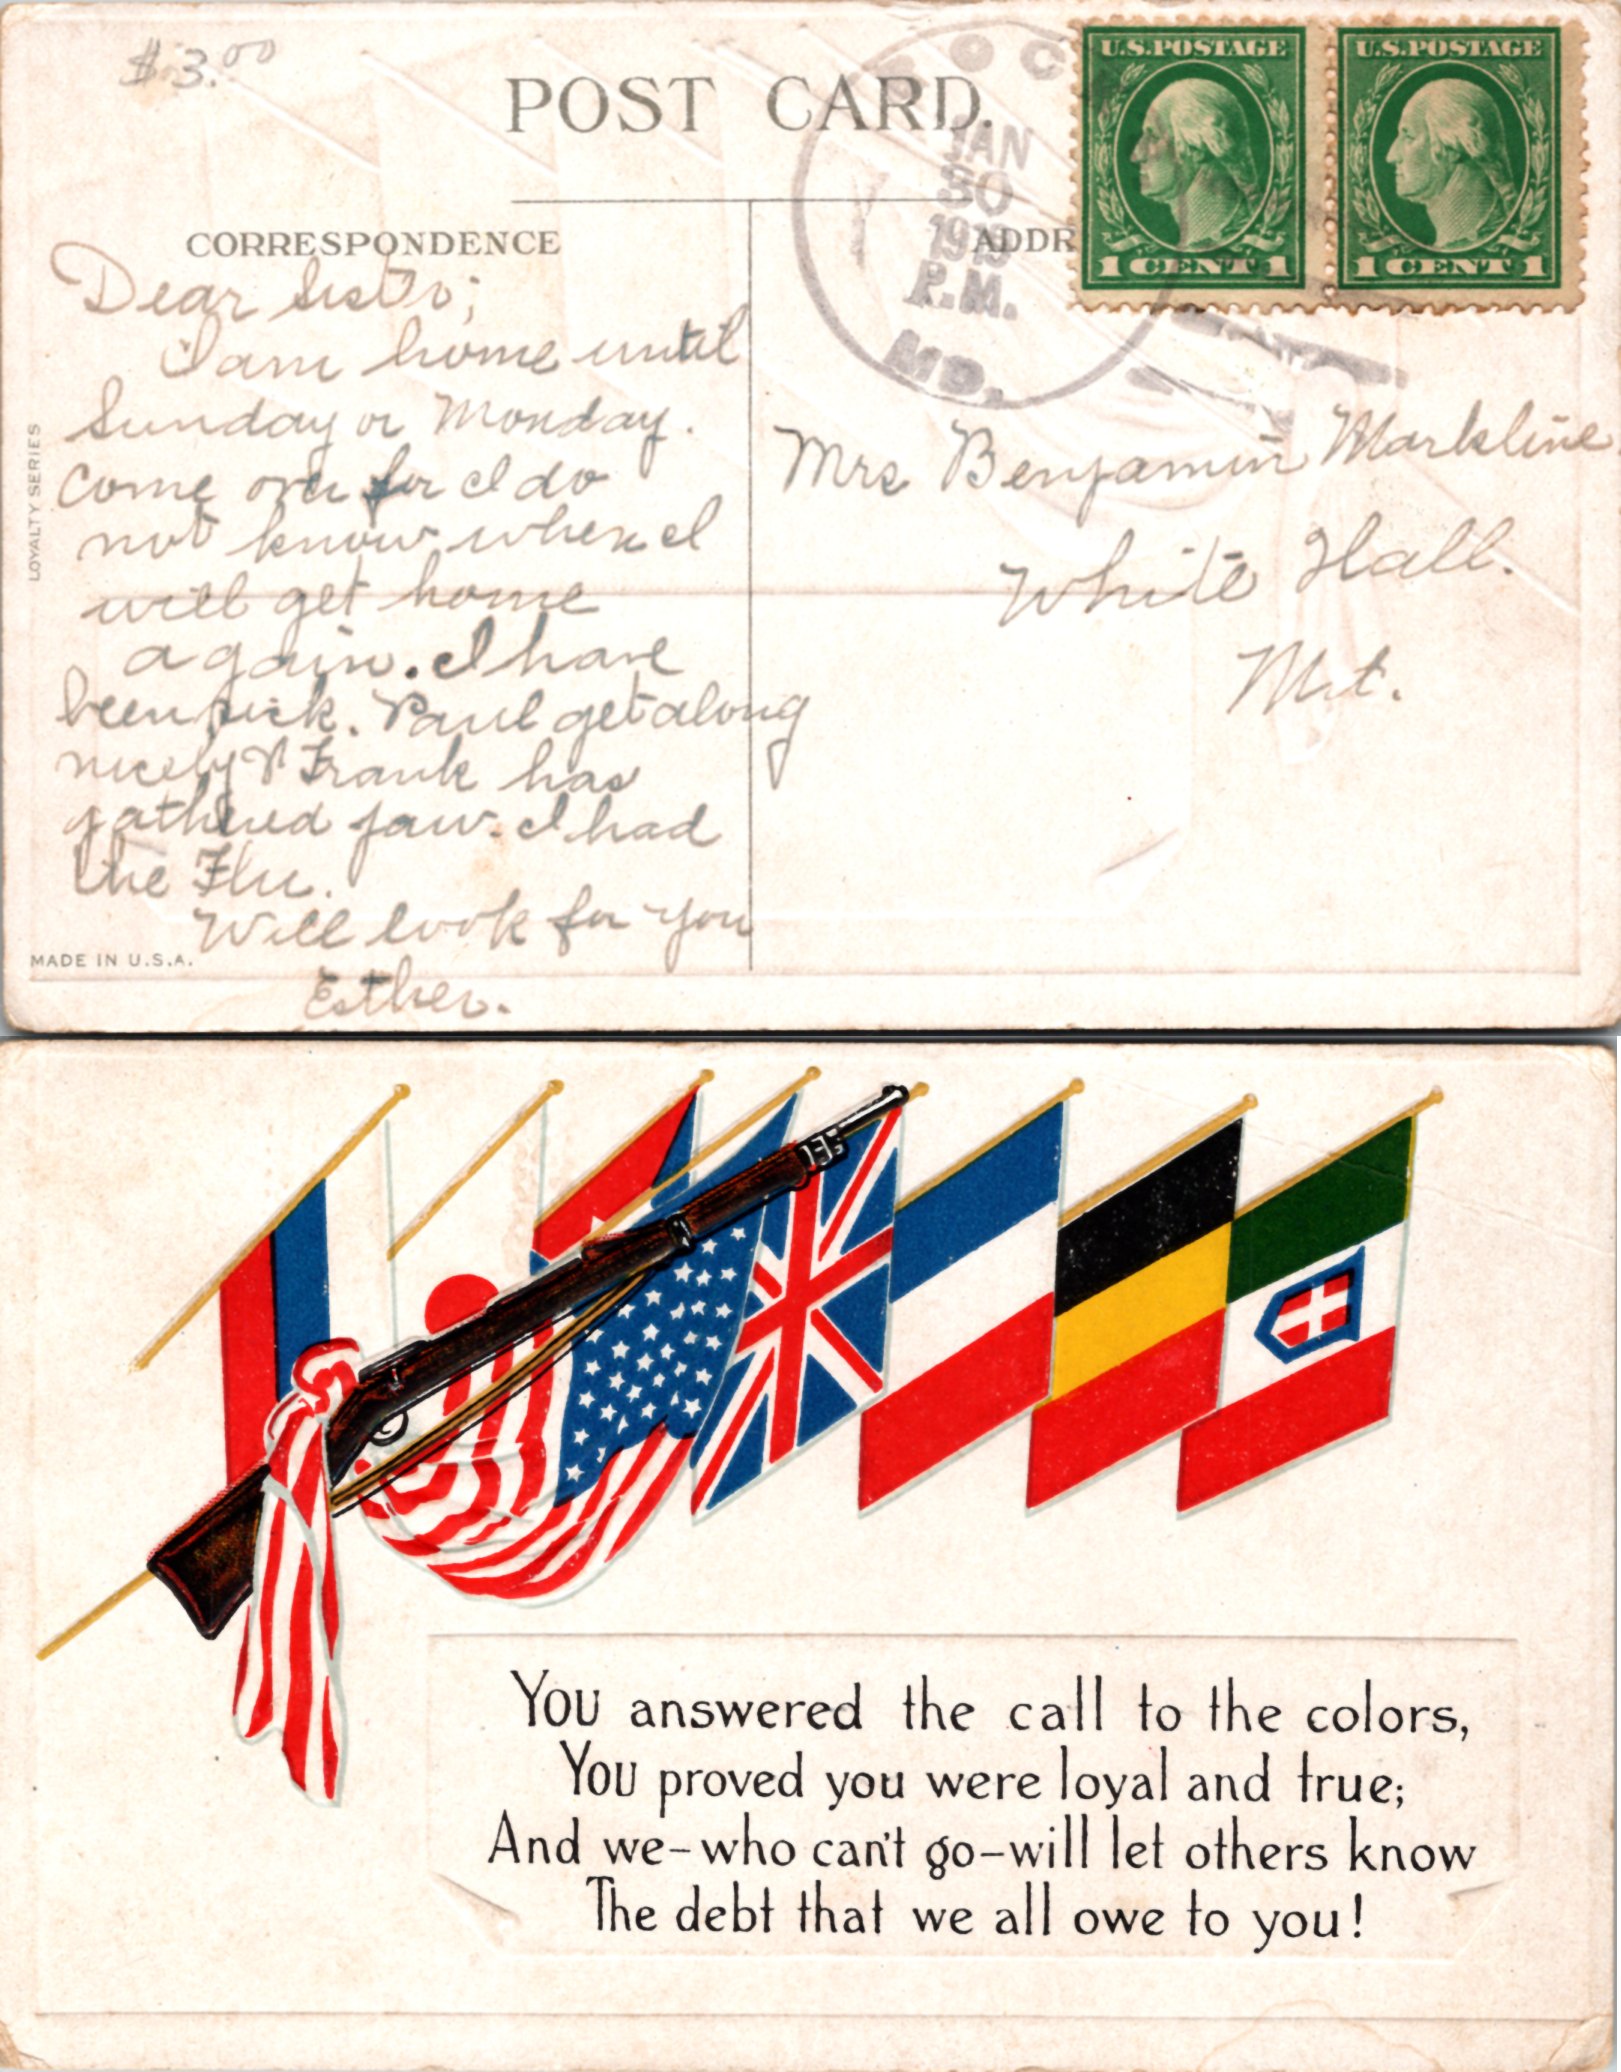 $3.00
POST CARD.
U.S. POSTAGE
1 CENT 1
U.S. POSTAGE
1 CENT 1
JAN
30
1919
P.M.
MD.
CORRESPONDENCE
ADDR
Dear Sister;
I am home until
Sunday or Monday.
Come over for I do
not know when I
will get home
again. I have
been sick. Paul get along
nicely & Frank has
gathered jaw. I had
the Flu.
Will look for you
Esther.
Mrs Benjamin Markline
White Hall.
Md.
LOYALTY SERIES
MADE IN U.S.A.
You answered the call to the colors,
You proved you were loyal and true;
And we-who can't go-will let others know
The debt that we all owe to you!